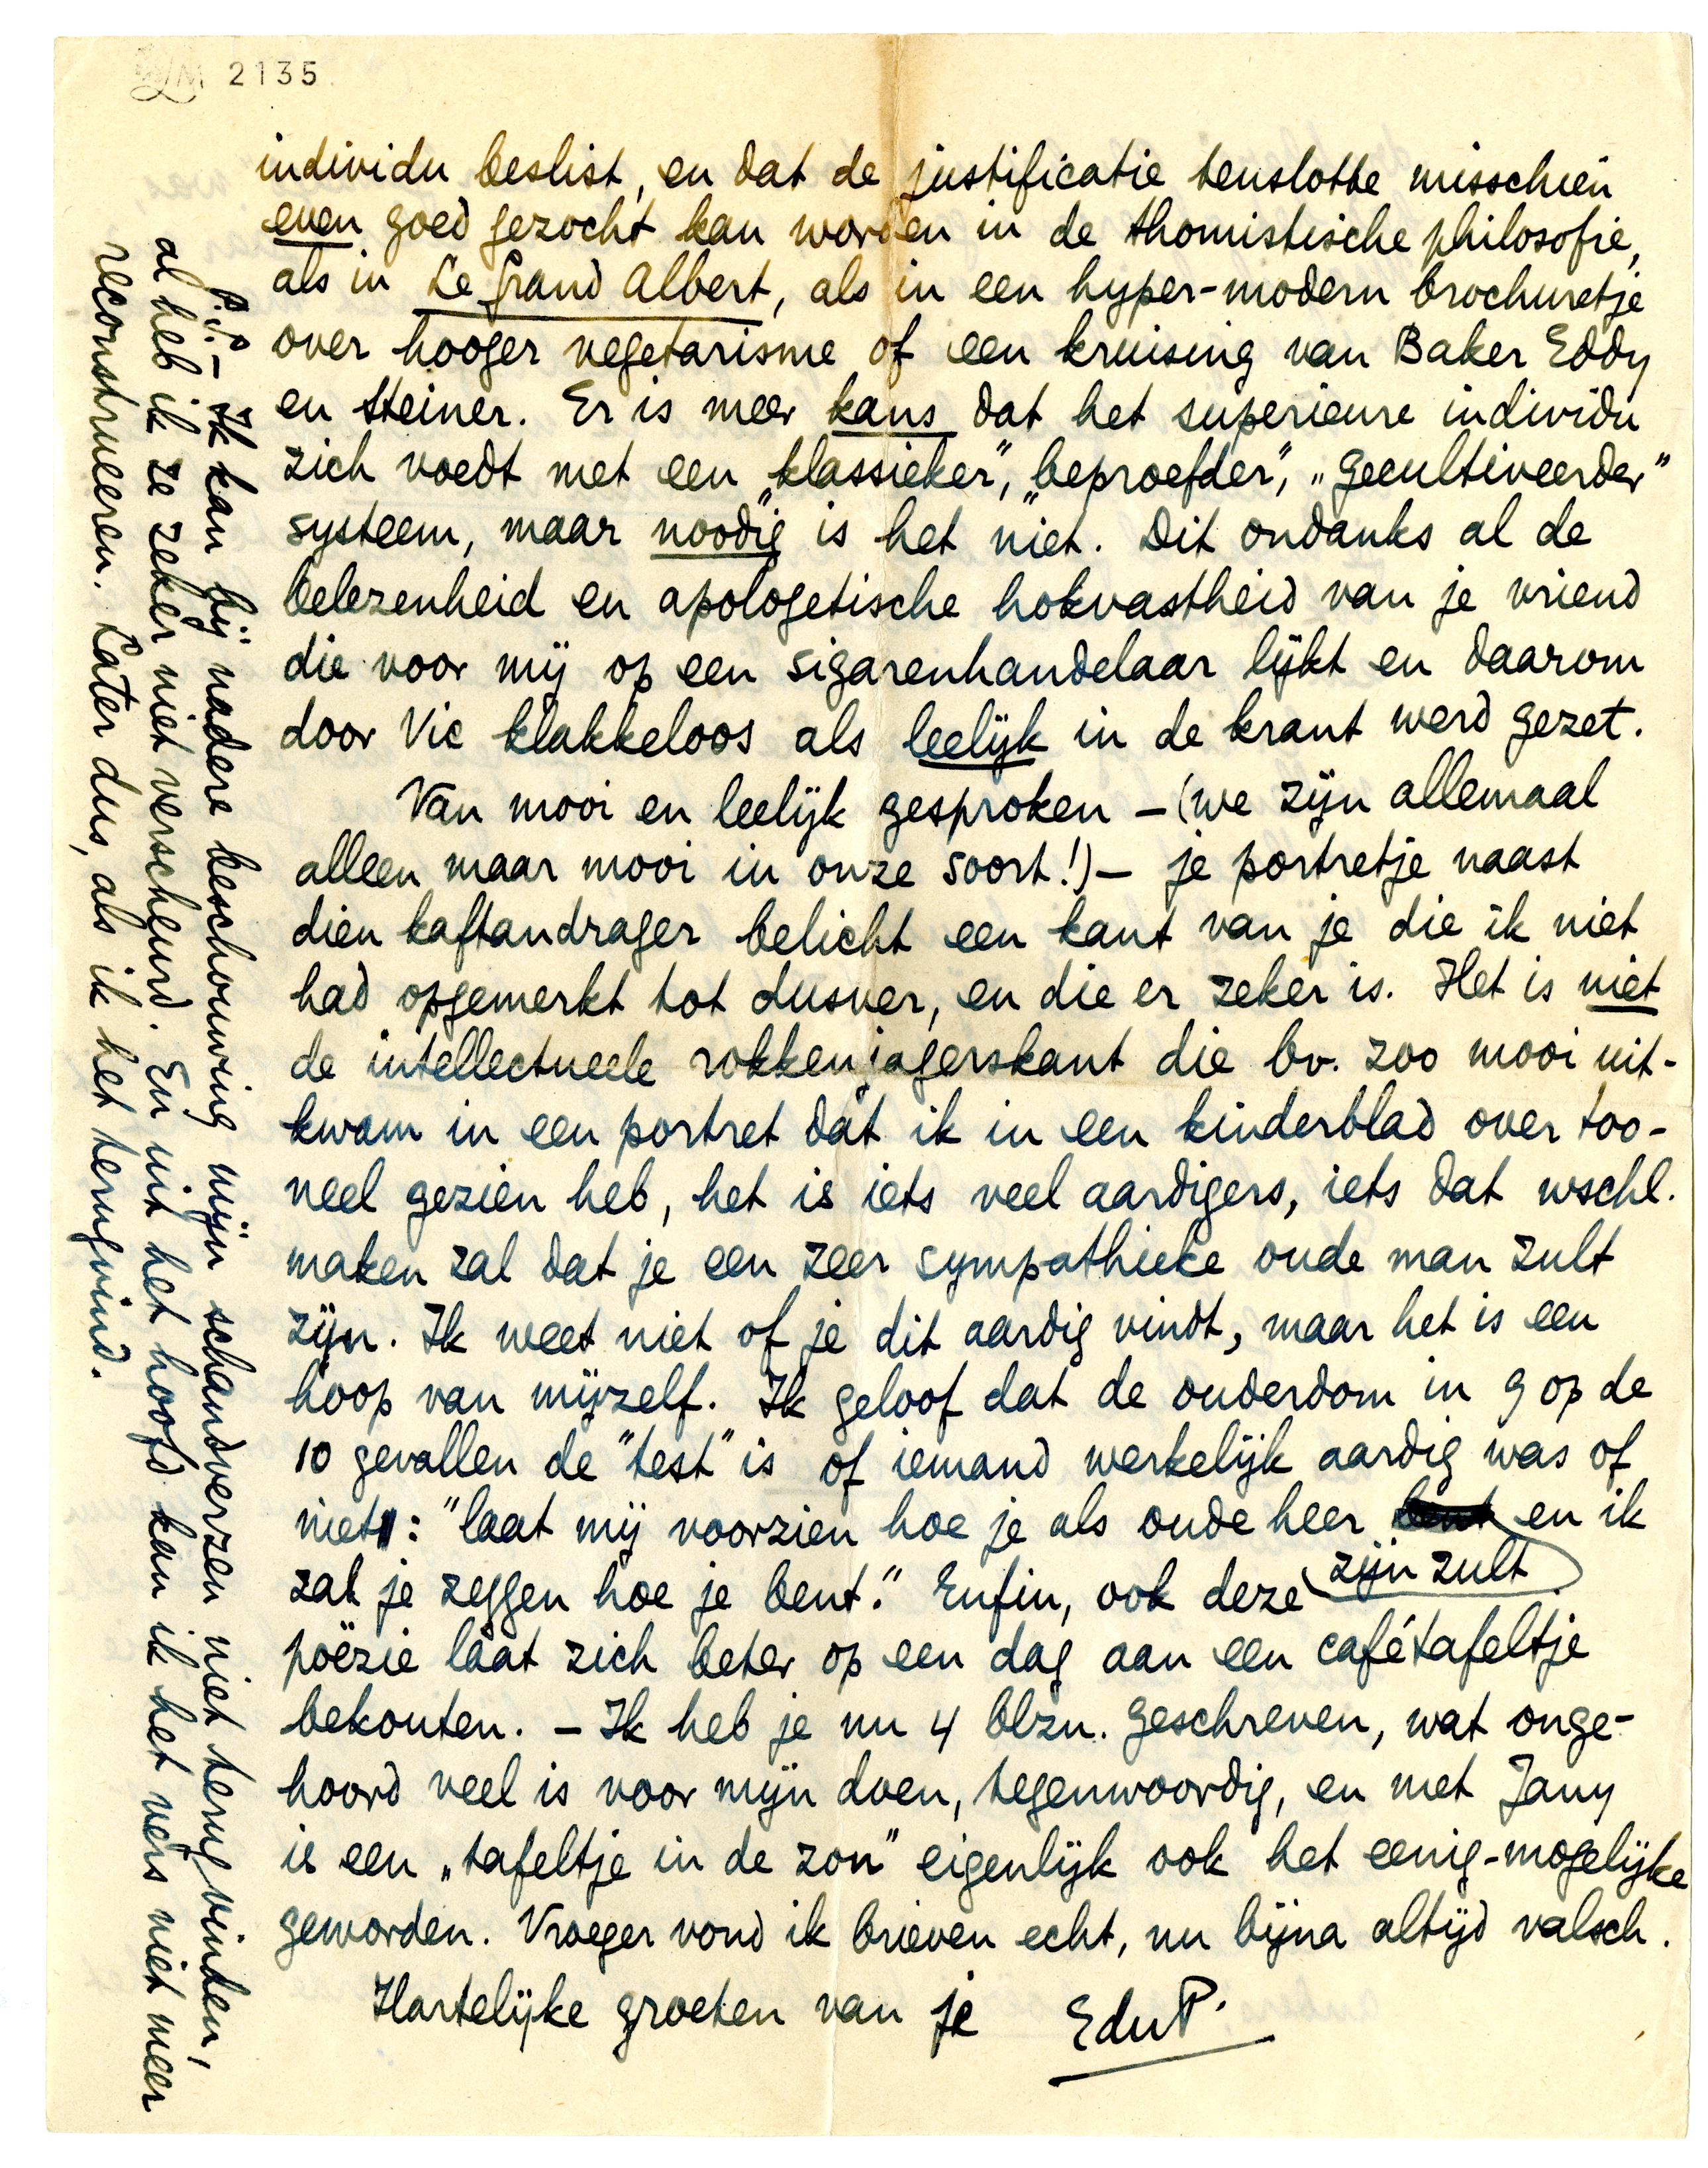 2135
individu beslist, en dat de justificatie tenslotte misschien
even goed gezocht kan worden in de thomistische philosofie,
als in Le Grand Albert, als in een hyper-modern brochuretje
over hooger vegetarisme of een kruising van Baker Eddy
en Steiner. Er is meer kans dat het superieure individu
zich voedt met een „klassieker”, „beproefder”, „gecultiveerder”
systeem, maar noodig is het niet. Dit ondanks al de
belezenheid en apologetische hokvastheid van je vriend
die voor mij op een sigarenhandelaar lijkt en daarom
door Vic klakkeloos als leelijk in de krant werd gezet.
Van mooi en leelijk gesproken – (we zijn allemaal
alleen maar mooi in onze soort!) – je portretje naast
dien kaftandrager belicht een kant van je die ik niet
had opgemerkt tot dusver, en die er zeker is. Het is niet
de intellectueele rokkenjagerskant die bv. zoo mooi uit-
kwam in een portret dat ik in een kinderblad over too-
neel gezien heb, het is iets veel aardigers, iets dat wschl.
maken zal dat je een zeer sympathieke oude man zult
zijn. Ik weet niet of je dit aardig vindt, maar het is een
hoop van mijzelf. Ik geloof dat de ouderdom in 9 op de
10 gevallen de "test" is of iemand werkelijk aardig was of
niet: "laat mij voorzien hoe je als oude heer bent en ik
zijn zult
zal je zeggen hoe je bent." Enfin, ook deze
poëzie laat zich beter op een dag aan een cafétafeltje
bekouten. – Ik heb je nu 4 blzn. geschreven, wat onge-
hoord veel is voor mijn doen, tegenwoordig, en met Jany
is een „tafeltje in de zon” eigenlijk ook het eenig-mogelijke
geworden. Vroeger vond ik brieven echt, nu bijna altijd valsch.
Hartelijke groeten van je EduP.
P.S. – Ik kan bij nadere beschouwing mijn schandverzen niet terugvinden,
al heb ik ze zeker niet verscheurd. En uit het hoofd kan ik het vers niet meer
reconstrueeren. Later dus, als ik het terugvind.